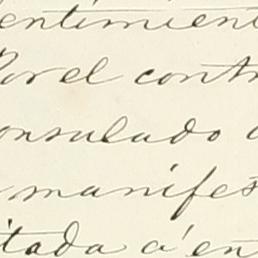 entimient
Por el contr
onsulado
manifes
itada á en